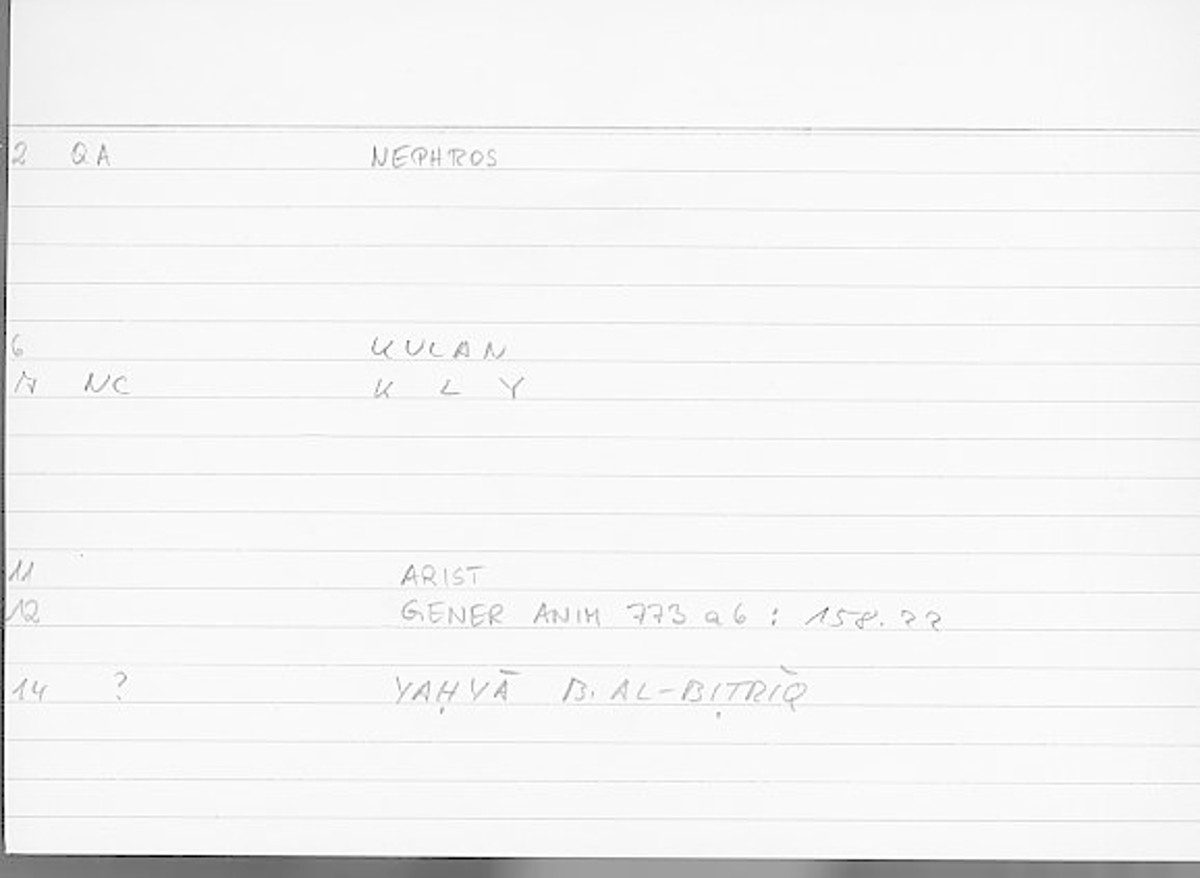 2 QA NEPHROS
6 KULAN
17 NC K L Y
11 ARIST
12 GENER ANIM 773 a 6 : 158.22
14 ? YAḤYĀ B. AL-BIṬRĪQ